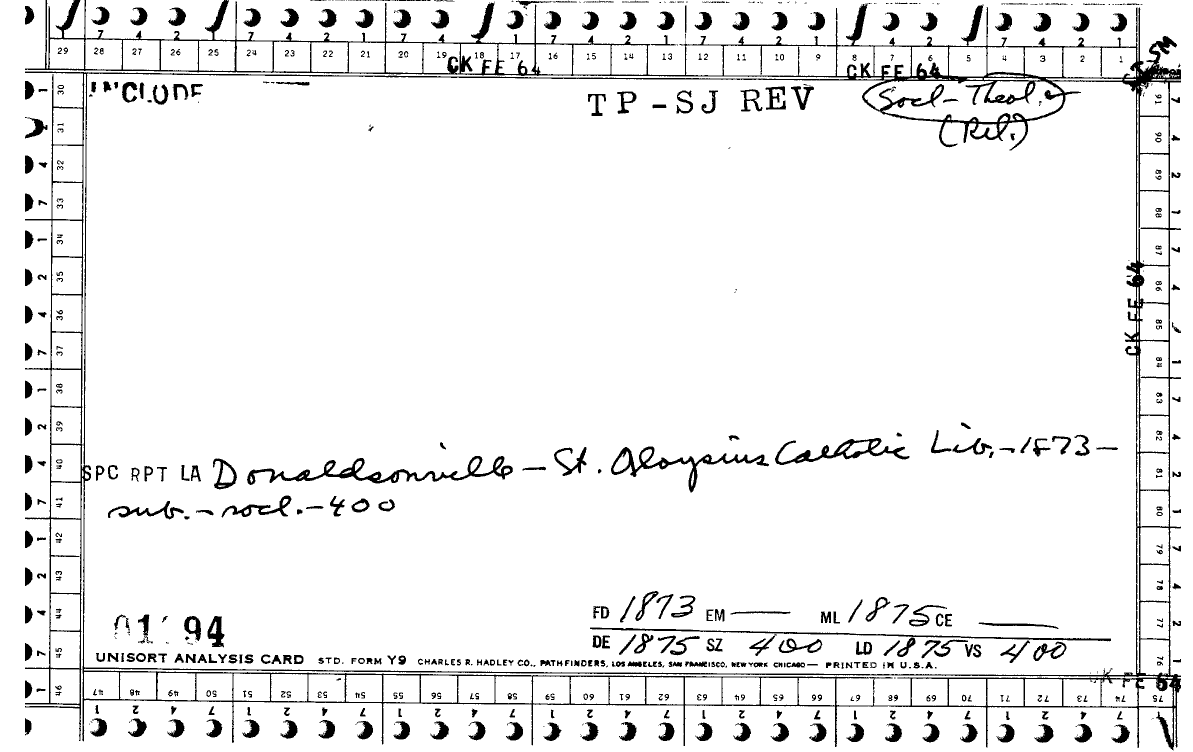 7 4 2 1 7 4 2 1 7 4 2 1 7 4 2 1 7 4 2 1 7 4 2 1
29 28 27 26 25 24 23 22 21 20 19 18 17 16 15 14 13 12 11 10 9 8 7 6 5 4 3 2 1
CK FE 64 CK FE 64
INCLUDE TP-SJ REV Socl-Theol.
(Rel.)
30 91
31 90
32 89
33 88
34 87
35 86
36 85
37 84
38 83
39 82
40 81
41 80
42 79
43 78
44 77
45 76
46 75
CK FE 64
SPC RPT LA Donaldsonville - St. Aloysius Catholic Lib. - 1873 -
sub. - socl. - 400
FD 1873 EM — ML 1875 CE —
DE 1875 SZ 400 LD 1875 VS 400
94
UNISORT ANALYSIS CARD STD. FORM Y9 CHARLES R. HADLEY CO., PATHFINDERS, LOS ANGELES, SAN FRANCISCO, NEW YORK CHICAGO — PRINTED IN U.S.A.
CK FE 64
47 48 49 50 51 52 53 54 55 56 57 58 59 60 61 62 63 64 65 66 67 68 69 70 71 72 73 74 75
1 2 4 7 1 2 4 7 1 2 4 7 1 2 4 7 1 2 4 7 1 2 4 7 1 2 4 7